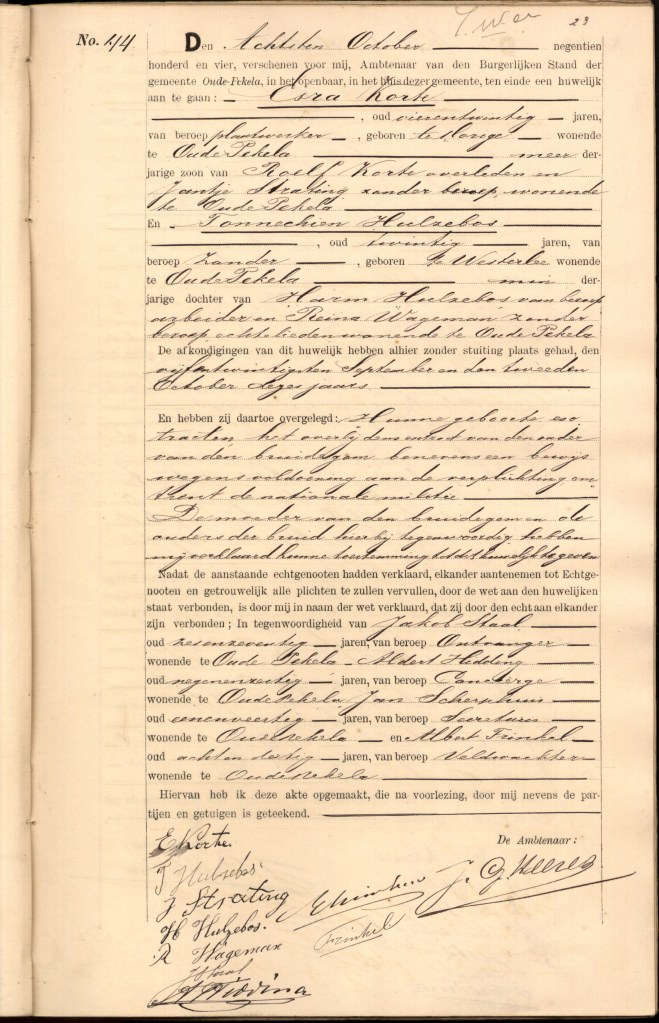 23
No. 44 Den Achtsten October negentien
honderd en vier, verschenen voor mij, Ambtenaar van den Burgerlijken Stand der
gemeente Oude-Pekela, in het openbaar, in het huis dezer gemeente, ten einde een huwelijk
aan te gaan: Esra Korte
, oud vierentwintig jaren,
van beroep , geboren te wonende
te Oude Pekela meer der-
jarige zoon van Roelf Korte overleden en
Jantje Strating zonder beroep, wonende
te Oude Pekela
En Tonnechien Hulzebos
, oud twintig jaren, van
beroep Zonder , geboren te Westerlee wonende
te Oude Pekela min der-
jarige dochter van Harm Hulzebos van beroep
arbeider en Reina Wageman zonder
beroep, echtelieden wonende te Oude Pekela
De afkondigingen van dit huwelijk hebben alhier zonder stuiting plaats gehad, den
vijfentwintigsten September en den tweeden
October dezes jaars
En hebben zij daartoe overgelegd: Hunne geboorte ex
tracten, het overlijdensextract van den vader
van den bruidegom benevens een bewijs
wegens voldoening aan de verplichting om
trent de nationale militie
De moeder van den bruidegom en de
ouders der bruid hierbij tegenwoordig hebben
mij verklaard hunne toestemming tot dit huwelijk te geven
Nadat de aanstaande echtgenooten hadden verklaard, elkander aantenemen tot Echtge-
nooten en getrouwelijk alle plichten te zullen vervullen, door de wet aan den huwelijken
staat verbonden, is door mij in naam der wet verklaard, dat zij door den echt aan elkander
zijn verbonden; In tegenwoordigheid van Jakob Staal
oud zesenzeventig jaren, van beroep Ontvanger
wonende te Oude Pekela Aldert Hidding
oud negenenzestig jaren, van beroep Concierge
wonende te Oude Pekela Jan Scherphuis
oud eenenveertig jaren, van beroep Secretaris
wonende te Oude Pekela en Albert Frinkel
oud achtendertig jaren, van beroep Veldwachter
wonende te Oude Pekela
Hiervan heb ik deze akte opgemaakt, die na voorlezing, door mij nevens de par-
tijen en getuigen is geteekend.
De Ambtenaar:
E Korte.
T Hulzebos.
J Strating
H Hulzebos.
R Wageman
J Staal
Frinkel